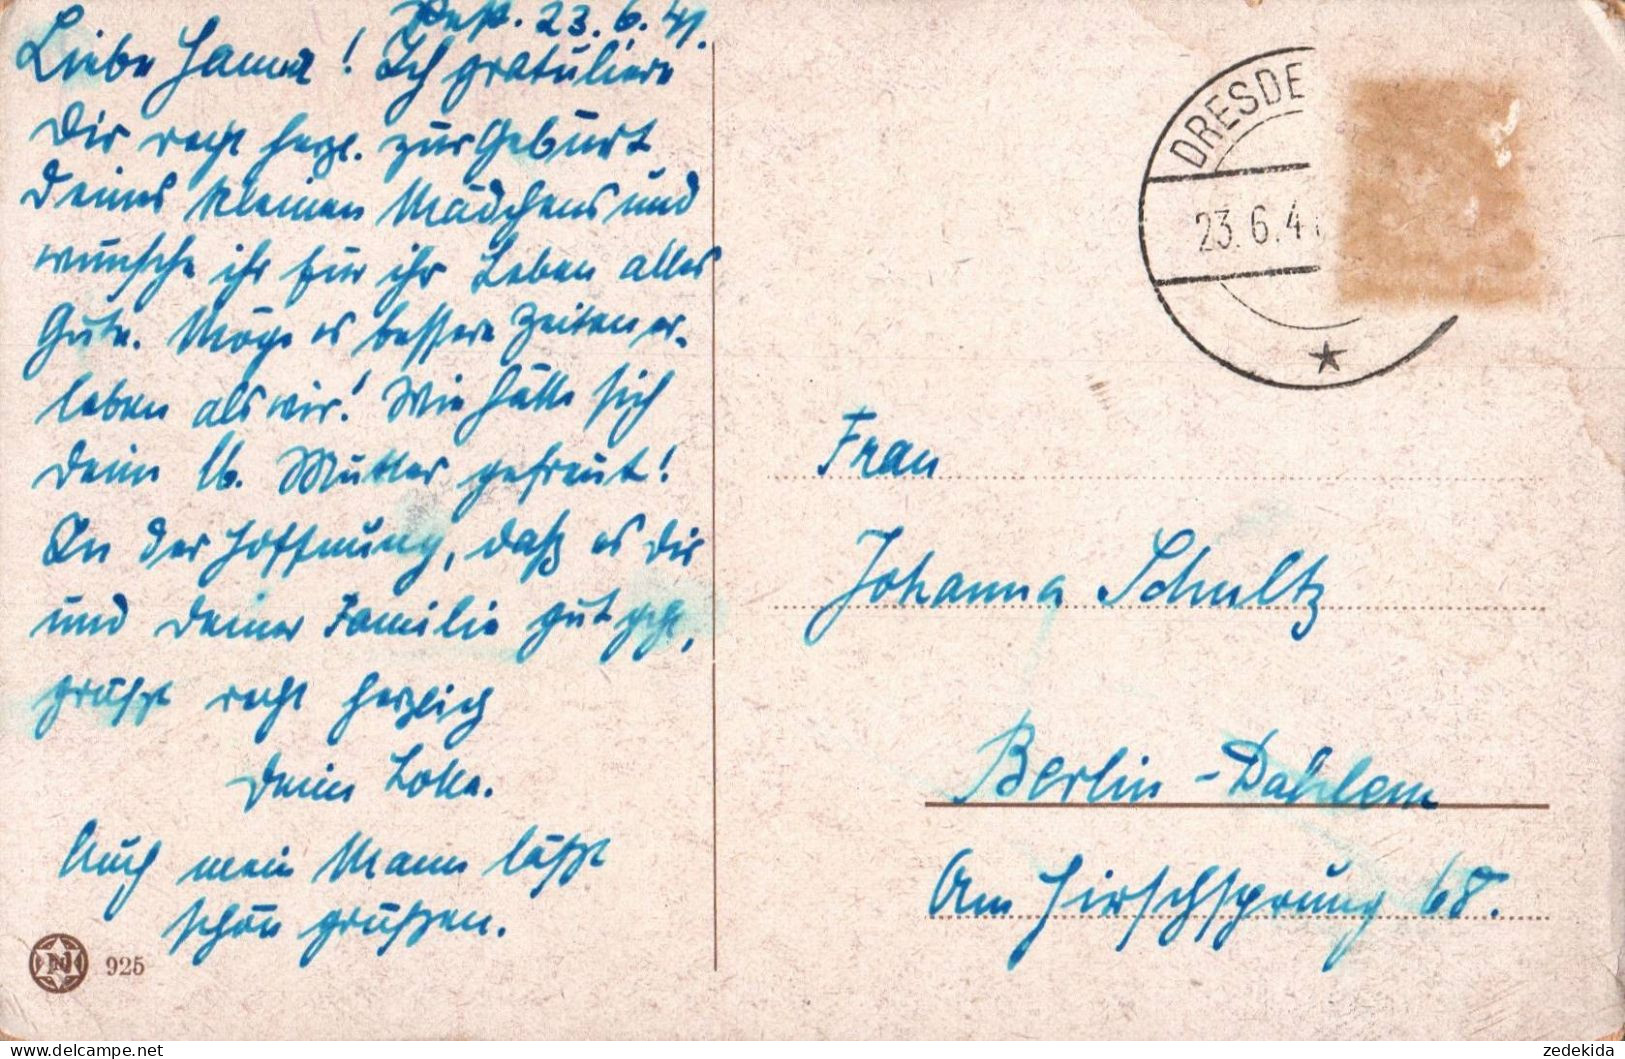 23.6.41.
Liebe Hanna! Ich gratuliere
Dir recht herzl. zur Geburt
Deines kleinen Mädchens und
wünsche ihr für ihr Leben alles
Gute. Möge es bessere Zeiten er-
leben als wir! Wie hätte sich
Deine lb. Mutter gefreut!
In der Hoffnung, daß es Dir
und Deiner Familie gut geht,
grüßt recht herzlich
Deine Lotte.
Auch mein Mann läßt
schön grüßen.
925
DRESDE
23.6.41
Frau
Johanna Schultz
Berlin-Dahlem
Am Hirschsprung 68.
zedekida